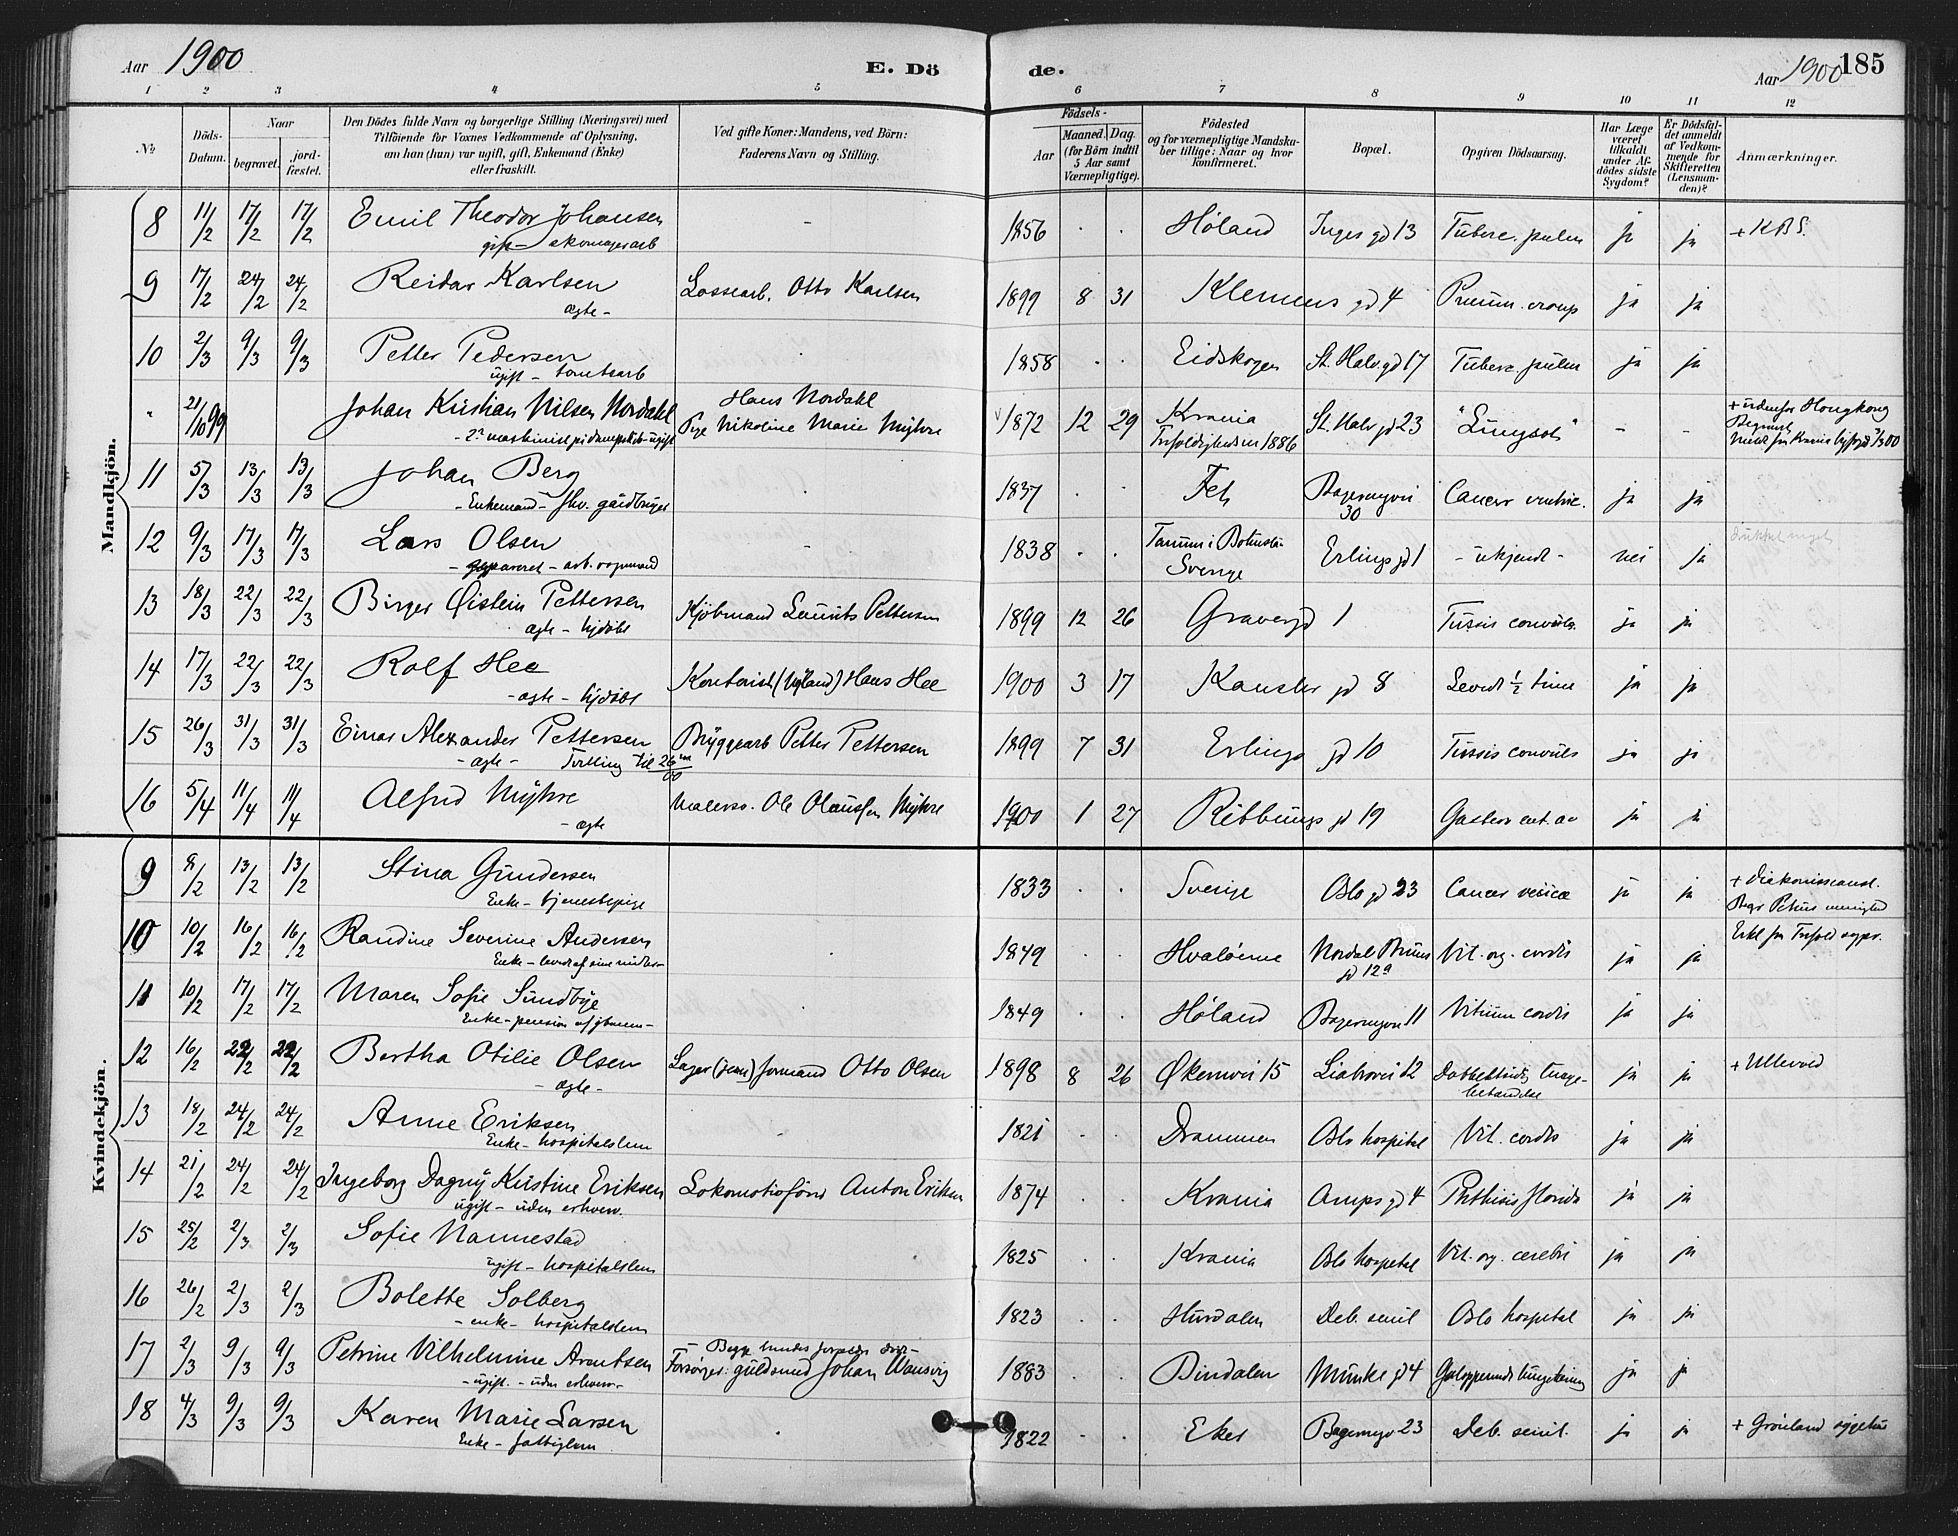 Aar 1900 E. Dö
de. Aar 1900 185
1 2 3 4 5 6 7 8 9 10 11 12
№ Döds-Datum. Naar begravet. jord-fæstet. Den Dödes fulde Navn og borgerlige Stilling (Næringsvei) med Tilföiende for Voxnes Vedkommende af Oplysning, om han (hun) var ugift, gift, Enkemand (Enke) eller fraskilt. Ved gifte Koner: Mandens, ved Börn: Faderens Navn og Stilling. Födsels- Aar Maaned. Dag. (for Börn indtil 5 Aar samt Værnepligtige). Födested og for værnepligtige Mandskaber tillige: Naar og hvor konfirmeret. Bopæl. Opgiven Dödsaarsag. Har Læge været tilkaldt under Afdödes sidste Sygdom? Er Dödsfaldet anmeldt af Vedkommende for Skifteretten (Lensmanden)? Anmærkninger.
Mandkjön.
8 11/2 17/2 17/2 Emil Theodor Johansen - 1856 . . Høland Inges gd 13 Tuberc. pulm ja ja + K B S.
gift - skomagerarb
9 17/2 24/2 24/2 Reidar Karlsen Lossearb. Otto Karlsen 1899 8 31 Klemens gd 4 Pneum. croup ja ja
ægte -
10 2/3 9/3 9/3 Petter Pedersen . 1858 . . Eidskogen St. Halv. gd 17 Tuberc. pulm ja ja
ugift - tomtearb
" 21/10 99 Johan Kristian Nilsen Nordahl Hans Nordahl
Pige Nikoline Marie Myhre 1872 12 29 Krania St. Halv gd 23 "Lungsot" - - + udenfor Hongkong
- 2den maskinist på dampskib - ugift Trefoldighed 1886 Begravet
11 5/3 13/3 13/3 Johan Berg . 1837 . . Fet Bagermyvei 30 Cancer ventric. ja ja
- Enkemand - fhv. gårdbruger
12 9/3 17/3 17/3 Lars Olsen - 1838 . . Tanum i Bohuslen Sverige Erlings gd 1 - ukjendt - nei ja
- separeret - arb. vognmand
13 18/3 22/3 22/3 Birger Øistein Pettersen Kjøbmand Laurits Pettersen 1899 12 26 Gravergd 1 Tussis convuls. ja ja
ægte - hjdøbt
14 17/3 22/3 22/3 Rolf Hee Kontorist Hans Hee 1900 3 17 Kansler gd 8 Levet ½ time ja ja
- ægte - hjdøbt
15 26/3 31/3 31/3 Einar Alexander Pettersen Bryggearb Petter Pettersen 1899 7 31 Erlings gd 10 Tussis convuls ja ja
- ægte - Tvilling til 26
16 5/4 11/4 11/4 Alfred Myhre Malersv. Ole Olaussen Myhre 1900 1 27 Ribbungs gd 19 Gastero ent. ac ja ja
- ægte
Kvindekjön.
9 8/2 13/2 13/2 Stina Gundersen 1833 . . Sverige Oslo gd 23 Cancer vesicæ ja ja + Diakonisseanst.
Enke - tjenestepige Begr Petrus menighed
10 10/2 16/2 16/2 Randine Severine Andersen 1849 . . Hvaløerne Nordal Bruns gd 12a Vit. org. cordis ja ja
Enke - levet af sine midler -
11 10/2 17/2 17/2 Maren Sofie Sundbye . 1849 . . Høland Bagermyvei 11 Vitium cordis ja ja
Enke - pension af jbanen -
12 16/2 22/2 22/2 Bertha Otilie Olsen Lager (jern) formand Otto Olsen 1898 8 26 Økernvei 15 Liabrovei 12 Dobbeltsidig lunge-betændelse ja ja + Ullevold
- ægte -
13 18/2 24/2 24/2 Anne Eriksen . 1821 . . Drammen Oslo hospital Vit. cordis ja ja
Enke - hospitalslem
14 21/2 24/2 24/2 Ingeborg Dagny Kristine Eriksen Lokomotivförer Anton Eriksen 1874 . . Krania Arups gd 4 Phthisis florida ja ja
ugift - uden erhverv.
15 25/2 2/3 2/3 Sofie Nannestad 1825 . . Krania Oslo hospital Vit. org. cerebri ja ja
ugift - hospitalslem
16 26/2 2/3 2/3 Bolette Solberg 1823 . . Hurdalen Deb. senil Oslo hospital ja ja
- enke - hospitalslem
17 2/3 9/3 9/3 Petrine Vilhelmine Arentsen Forsørger: guldsmed Johan 1883 . . Bindalen Munke gd 4 Galopperende lungetæring ja ja
- ugift. - uden erhverv -
18 4/3 9/3 9/3 Karen Marie Larsen . 1822 . . Eker Bagermyv 23 Deb. senil. ja ja + Grönland sygehus
Enke - fattiglem